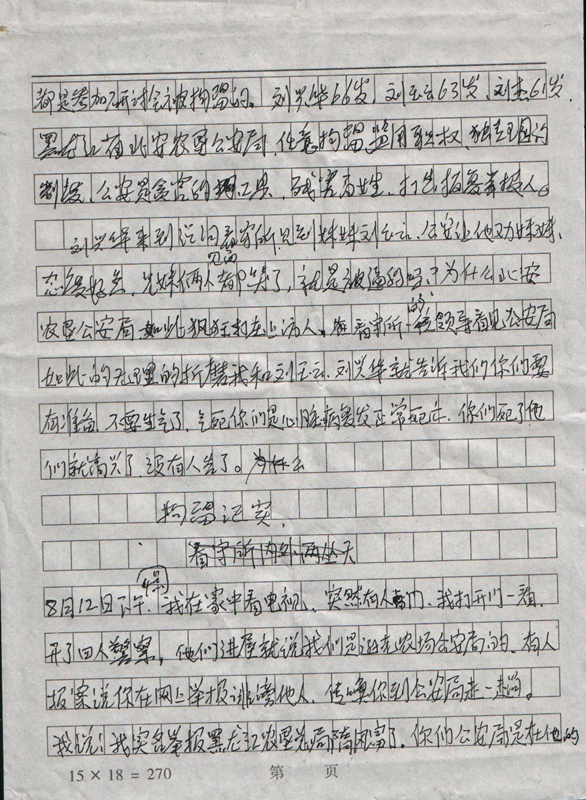 都是参加研讨会被拘留的。刘兴华66岁，刘玉云63岁，刘杰61岁。
黑龙江省北安农垦公安局，任意拘留滥用职权，独立王国的
制度，公安是贪官的工具，残害百姓，打击报复举报人。
刘兴华来到，看守所见到妹妹刘玉云，公安让他劝妹妹，
见面
态度好点，兄妹俩人都哭了，就是被逼的吗？为什么北安
农垦公安局如此疯狂打击上访人。看守所的一位领导看见公安局
如此的无理的折磨我和刘玉云，刘兴华告诉我们你们要
有准备，不要生气了，气死你们是心脏病突发正常死亡，你们死了他
们就高兴了，没有人告了。为什么
拘留证实，
看守所内外两坐天
8月12日下午，4点我在家中看电视，突然有人门，我打开门一看，
开了四人警察，他们进屋就说我们是逊克农场公安局的，有人
报案说你在网上举报诽谤他人，传唤你到公安局走一趟。
我说：我实名举报黑龙江农垦总局隋凤富了，你们公安局是在他的
15×18=270 第 页